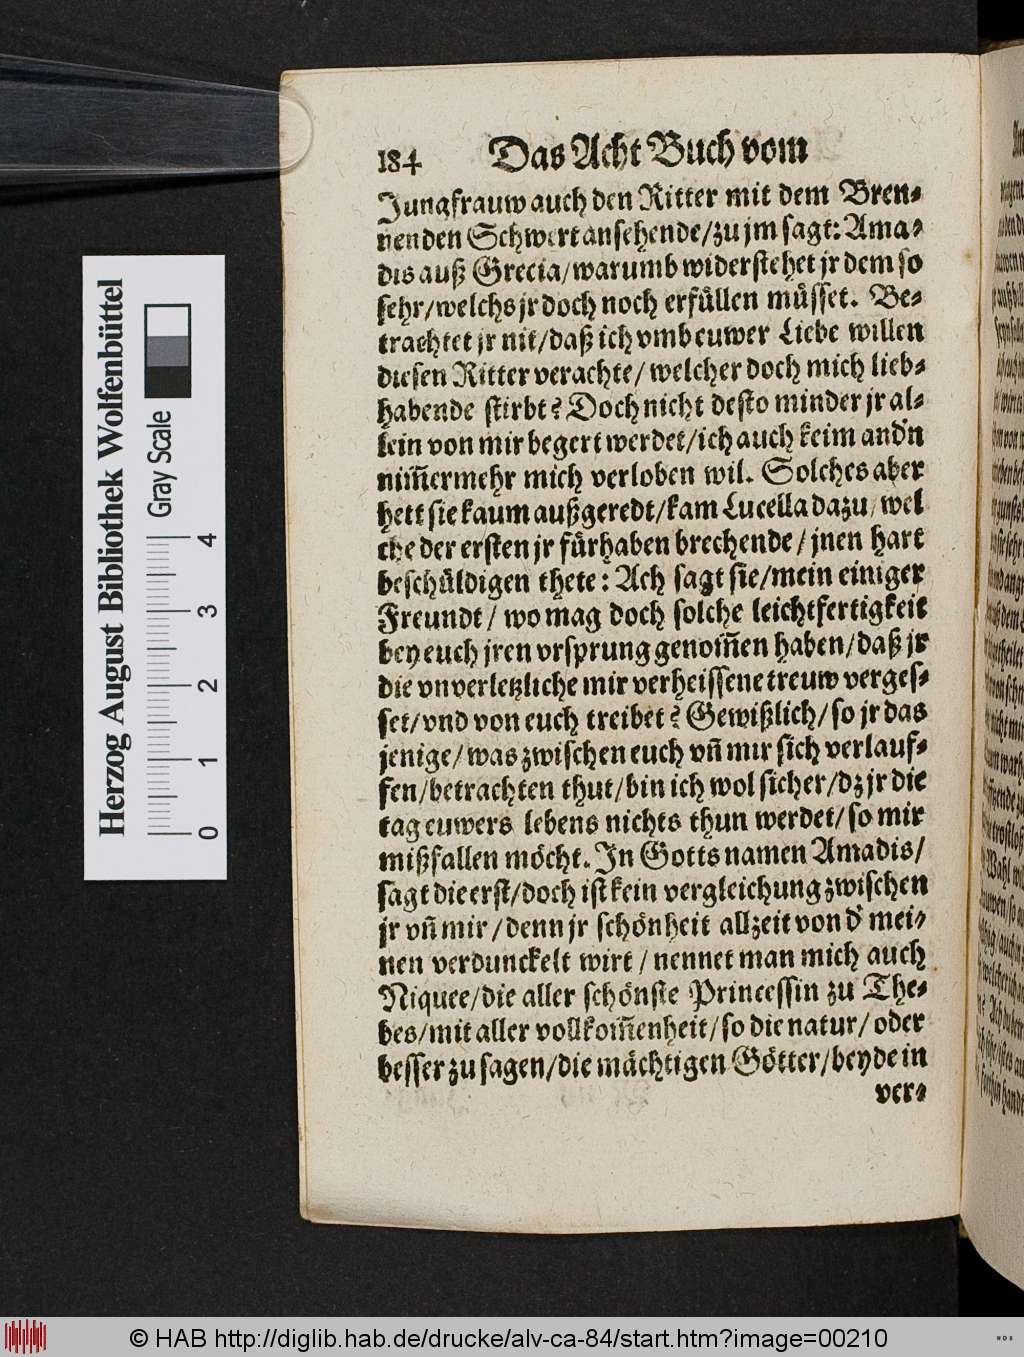 184 Das Acht Buch vom
Jungfrauw auch den Ritter mit dem Bren-
nenden Schwert ansehende/zu jm sagt: Ama-
dis auß Grecia/warumb widerstehet jr dem so
sehr/welchs jr doch noch erfüllen müsset. Be-
trachtet jr nit/daß ich vmb euwer Liebe willen
diesen Ritter verachte/welcher doch mich lieb-
habende stirbt? Doch nicht desto minder jr al-
lein von mir begert werdet/ich auch keim and'n
nim̃ermehr mich verloben wil. Solches aber
hett sie kaum außgeredt/kam Lucella dazu/wel
che der ersten jr fürhaben brechende/jnen hart
beschüldigen thete: Ach sagt sie/mein einiger
Freundt/wo mag doch solche leichtfertigkeit
bey euch jren vrsprung genom̃en haben/daß jr
die vnverletzliche mir verheissene treuw verges-
set/vnd von euch treibet? Gewißlich/so jr das
jenige/was zwischen euch vñ mir sich verlauf-
fen/betrachten thut/bin ich wol sicher/dz jr die
tag euwers lebens nichts thun werdet/so mir
mißfallen möcht. In Gotts namen Amadis/
sagt die erst/doch ist kein vergleichung zwischen
jr vñ mir/denn jr schönheit allzeit von d' mei-
nen verdunckelt wirt/nennet man mich auch
Niquee/die aller schönste Princessin zu The-
bes/mit aller vollkom̃enheit/so die natur/oder
besser zu sagen/die mächtigen Götter/beyde in
ver-
Herzog August Bibliothek Wolfenbüttel
Gray Scale
0 1 2 3 4
© HAB http://diglib.hab.de/drucke/alv-ca-84/start.htm?image=00210